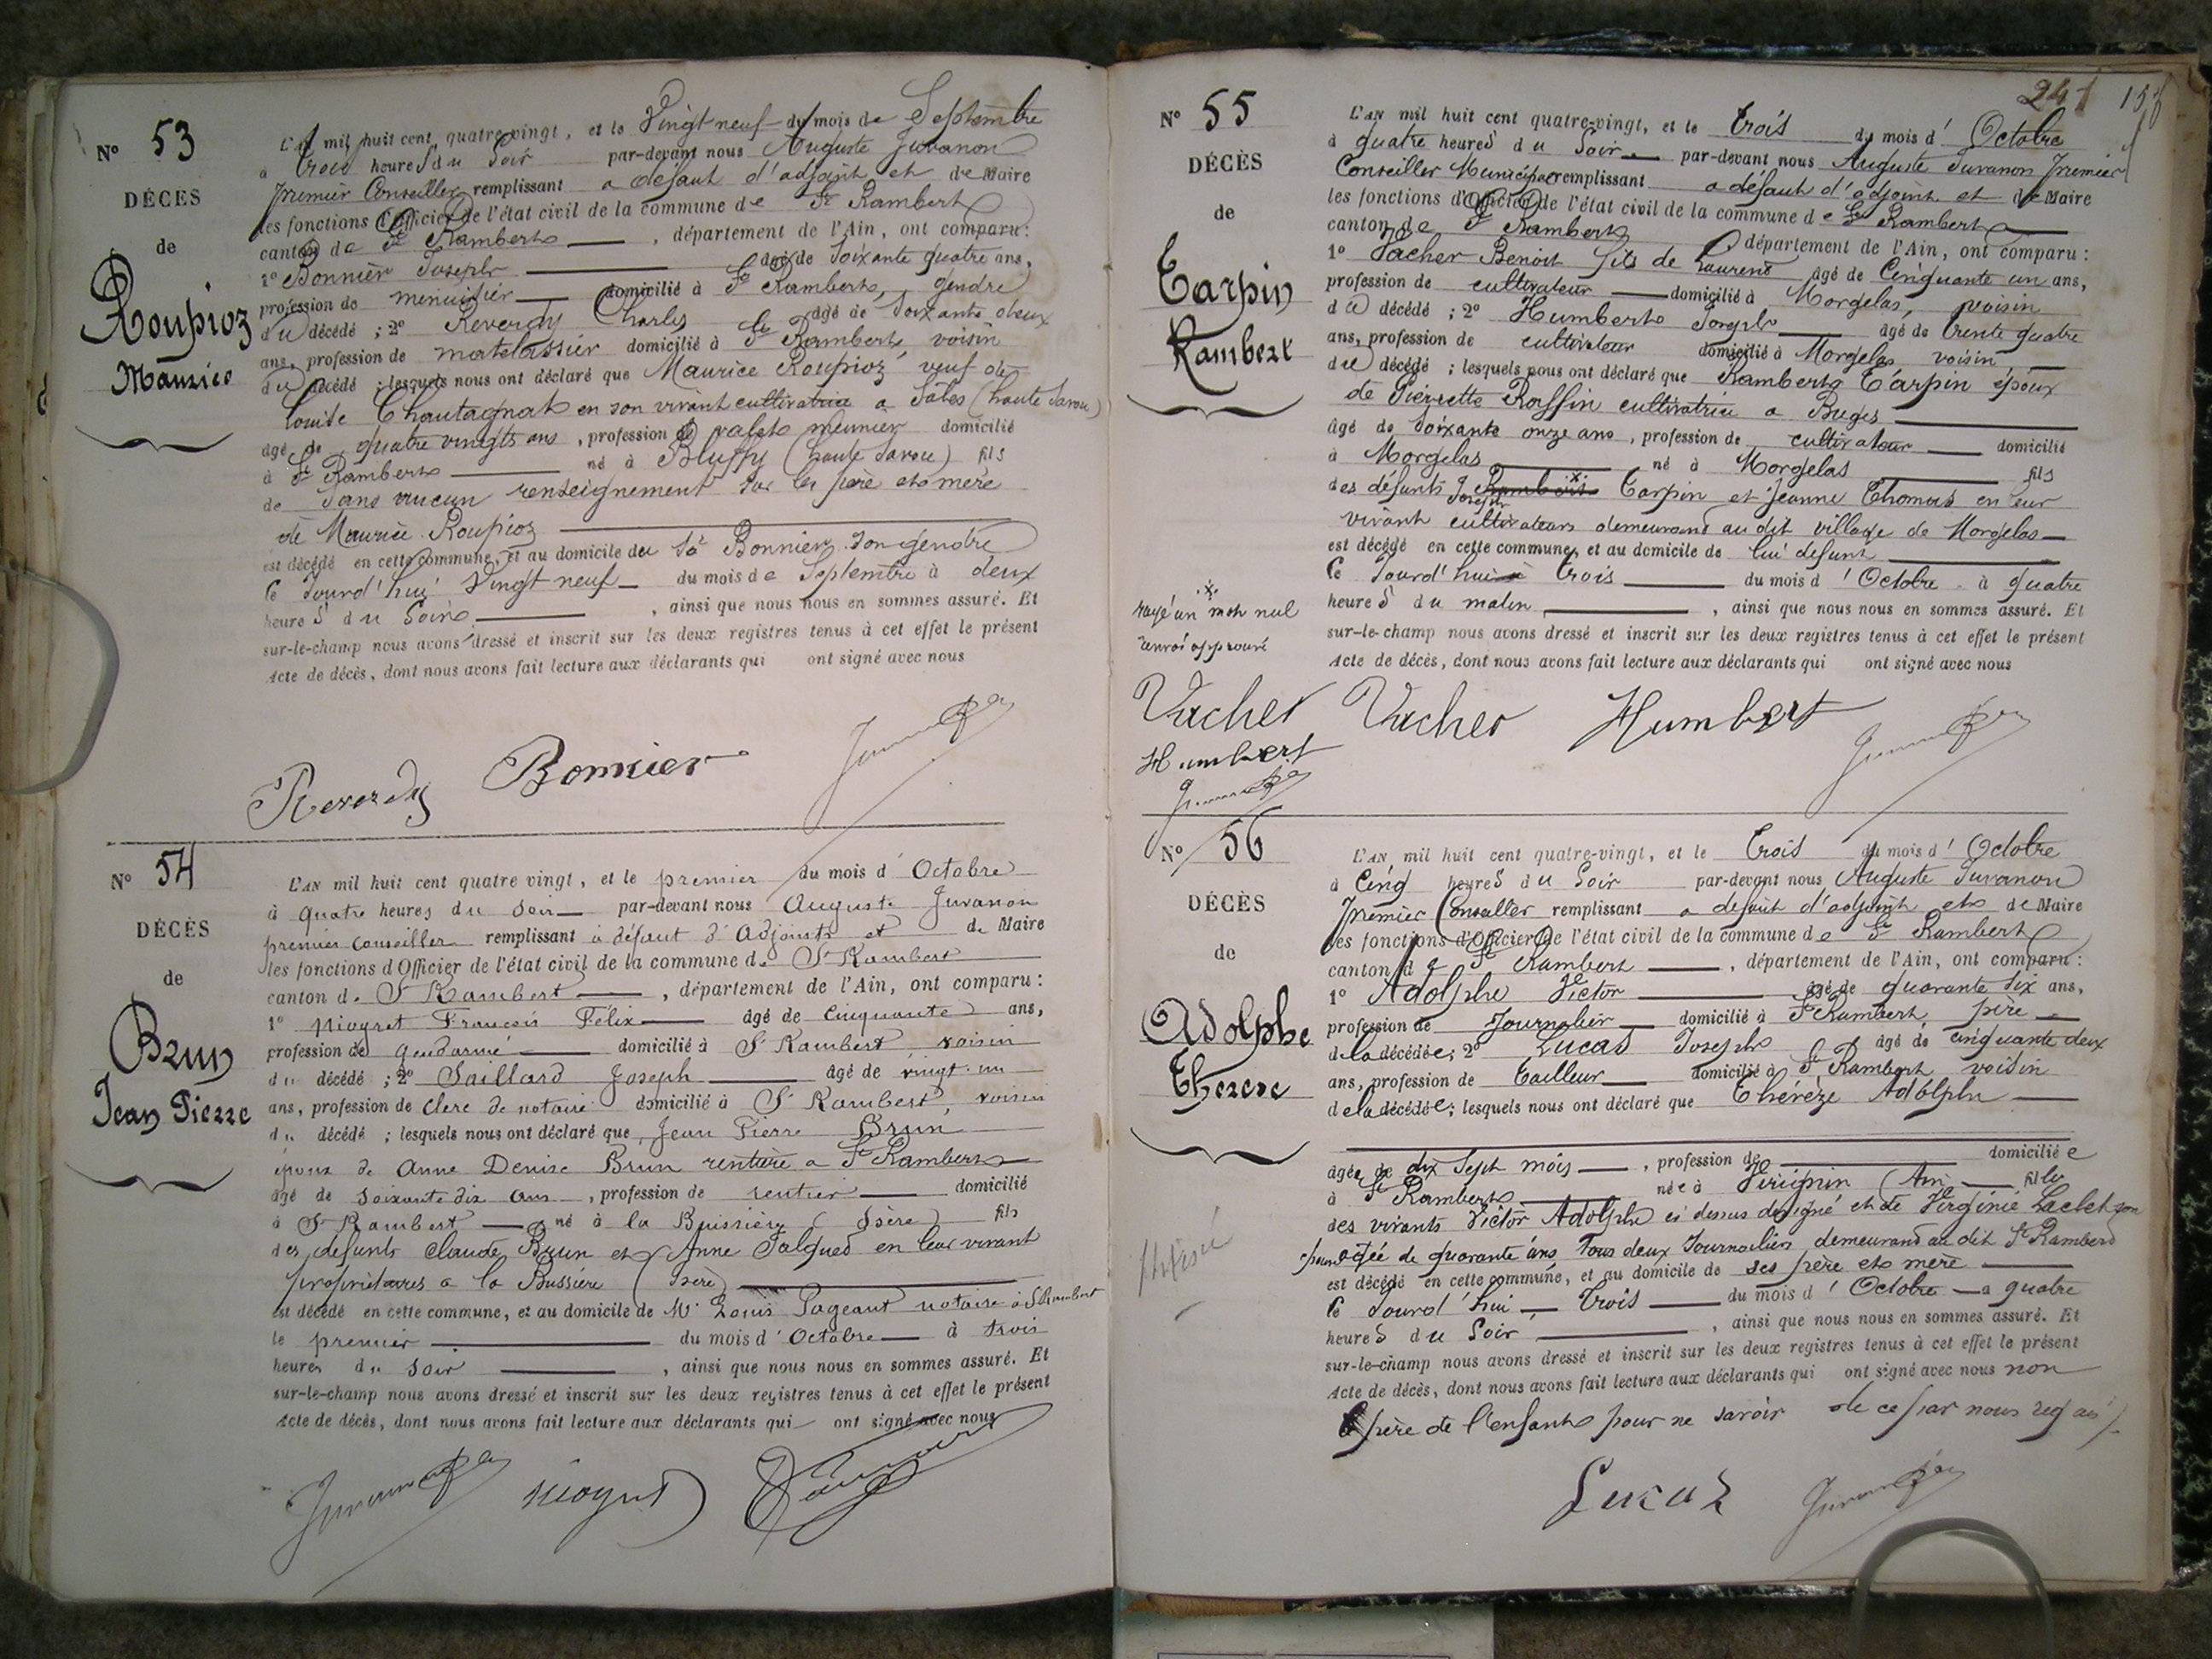 N° 53
DÉCÈS
de
Roupioz
Maurice
L'AN mil huit cent quatre-vingt, et le Vingt neuf du mois de Septembre
à trois heures du Soir par-devant nous Auguste Juvanon
premier Conseiller remplissant a défaut d'adjoint et de Maire
les fonctions d'Officier de l'état civil de la commune de St Rambert
canton de St Rambert , département de l'Ain, ont comparu:
1° Bonnier Joseph âgé de Soixante quatre ans,
profession de menuisier domicilié à St Rambert, gendre
du décédé ; 2° Reverdy Charles âgé de Soixante deux
ans, profession de matelassier domicilié à St Rambert, voisin
du décédé ; lesquels nous ont déclaré que Maurice Roupioz veuf de
Louise Chautagnat en son vivant cultivatrice a (haute Savoie)
âgé de quatre vingts ans , profession de valet meunier domicilié
à St Rambert né à Bluffy (haute Savoie) fils
de Sans aucun renseignement sur les père et mère
de Maurice Roupioz
est décédé en cette commune, et au domicile du Sr Bonnier son gendre
le Jourd'hui Vingt neuf du mois de Septembre à deux
heures du Soir , ainsi que nous nous en sommes assuré. Et
sur-le-champ nous avons dressé et inscrit sur les deux registres tenus à cet effet le présent
Acte de décès, dont nous avons fait lecture aux déclarants qui ont signé avec nous
Reverdy Bonnier
N° 54
DÉCÈS
de
Brun
Jean Pierre
L'AN mil huit cent quatre vingt, et le premier du mois d'Octobre
à quatre heures du soir par-devant nous Auguste Juvanon
premier conseiller remplissant à défaut d'Adjoints et de Maire
les fonctions d'Officier de l'état civil de la commune de St Rambert
canton de St Rambert , département de l'Ain, ont comparu:
1° Niogret François Félix âgé de Cinquante ans,
profession de gendarme domicilié à St Rambert voisin
du décédé ; 2° Saillard Joseph âgé de vingt-un
ans, profession de clerc de notaire domicilié à St Rambert, voisin
du décédé ; lesquels nous ont déclaré que Jean Pierre Brun
époux de Anne Denise Brun rentière a St Rambert
âgé de soixante dix ans , profession de rentier domicilié
à St Rambert né à la Buissière (Isère) fils
des défunts Claude Brun et Anne en leur vivant
propriétaires a la Bussière (Isère)
est décédé en cette commune, et au domicile de Mr Louis Pageaut notaire à St Rambert
le premier du mois d'Octobre à trois
heures du soir , ainsi que nous nous en sommes assuré. Et
sur-le-champ nous avons dressé et inscrit sur les deux registres tenus à cet effet le présent
Acte de décès, dont nous avons fait lecture aux déclarants qui ont signé avec nous
Niogret
241
N° 55
DÉCÈS
de
Tarpin
Rambert
L'AN mil huit cent quatre-vingt, et le trois du mois d'Octobre
à quatre heures du Soir par-devant nous Auguste Juvanon premier
Conseiller Municipal remplissant a défaut d'adjoint et de Maire
les fonctions d'Officier de l'état civil de la commune de St Rambert
canton de St Rambert département de l'Ain, ont comparu:
1° Vacher Benoit fils de Laurent âgé de Cinquante un ans,
profession de cultivateur domicilié à Morgelas, voisin
du décédé ; 2° Humbert Joseph âgé de trente quatre
ans, profession de cultivateur domicilié à Morgelas voisin
du décédé ; lesquels nous ont déclaré que Rambert Tarpin époux
de Pierrette Roffin cultivatrice a
âgé de Soixante onze ans , profession de cultivateur domicilié
à Morgelas né à Morgelas fils
des défunts Joseph Tarpin et Jeanne Thomas en leur
vivant cultivateurs demeurant au dit village de Morgelas
est décédé en cette commune, et au domicile de lui défunt
le Jourd'hui trois du mois d'Octobre à quatre
heures du matin , ainsi que nous nous en sommes assuré. Et
sur-le-champ nous avons dressé et inscrit sur les deux registres tenus à cet effet le présent
Acte de décès, dont nous avons fait lecture aux déclarants qui ont signé avec nous
rayé un mot nul
renvoi approuvé
Vacher
Humbert
Vacher Humbert
N° 56
DÉCÈS
de
Adolphe
Therese
L'AN mil huit cent quatre-vingt, et le trois du mois d'Octobre
à Cinq heures du Soir par-devant nous Auguste Juvanon
premier Conseiller remplissant a défaut d'adjoint et de Maire
les fonctions d'Officier de l'état civil de la commune de St Rambert
canton de St Rambert , département de l'Ain, ont comparu:
1° Adolphe Victor âgé de quarante six ans,
profession de Journalier domicilié à St Rambert père
de la décédée; 2° Lucas Joseph âgé de cinquante deux
ans, profession de tailleur domicilié à St Rambert voisin
de la décédée; lesquels nous ont déclaré que Thérèze Adolphe
âgée de dix Sept mois , profession de domiciliée
à St Rambert née à (Ain) fille
des vivants Victor Adolphe ci dessus designé et de Virginie son
épouse âgée de quarante ans tous deux Journaliers demeurant au dit St Rambert
est décédé en cette commune, et au domicile de ses père et mère
le Jourd'hui trois du mois d'Octobre a quatre
heures du Soir , ainsi que nous nous en sommes assuré. Et
sur-le-champ nous avons dressé et inscrit sur les deux registres tenus à cet effet le présent
Acte de décès, dont nous avons fait lecture aux déclarants qui ont signé avec nous non
le père de l'enfant pour ne savoir de ce par nous requis
Lucas